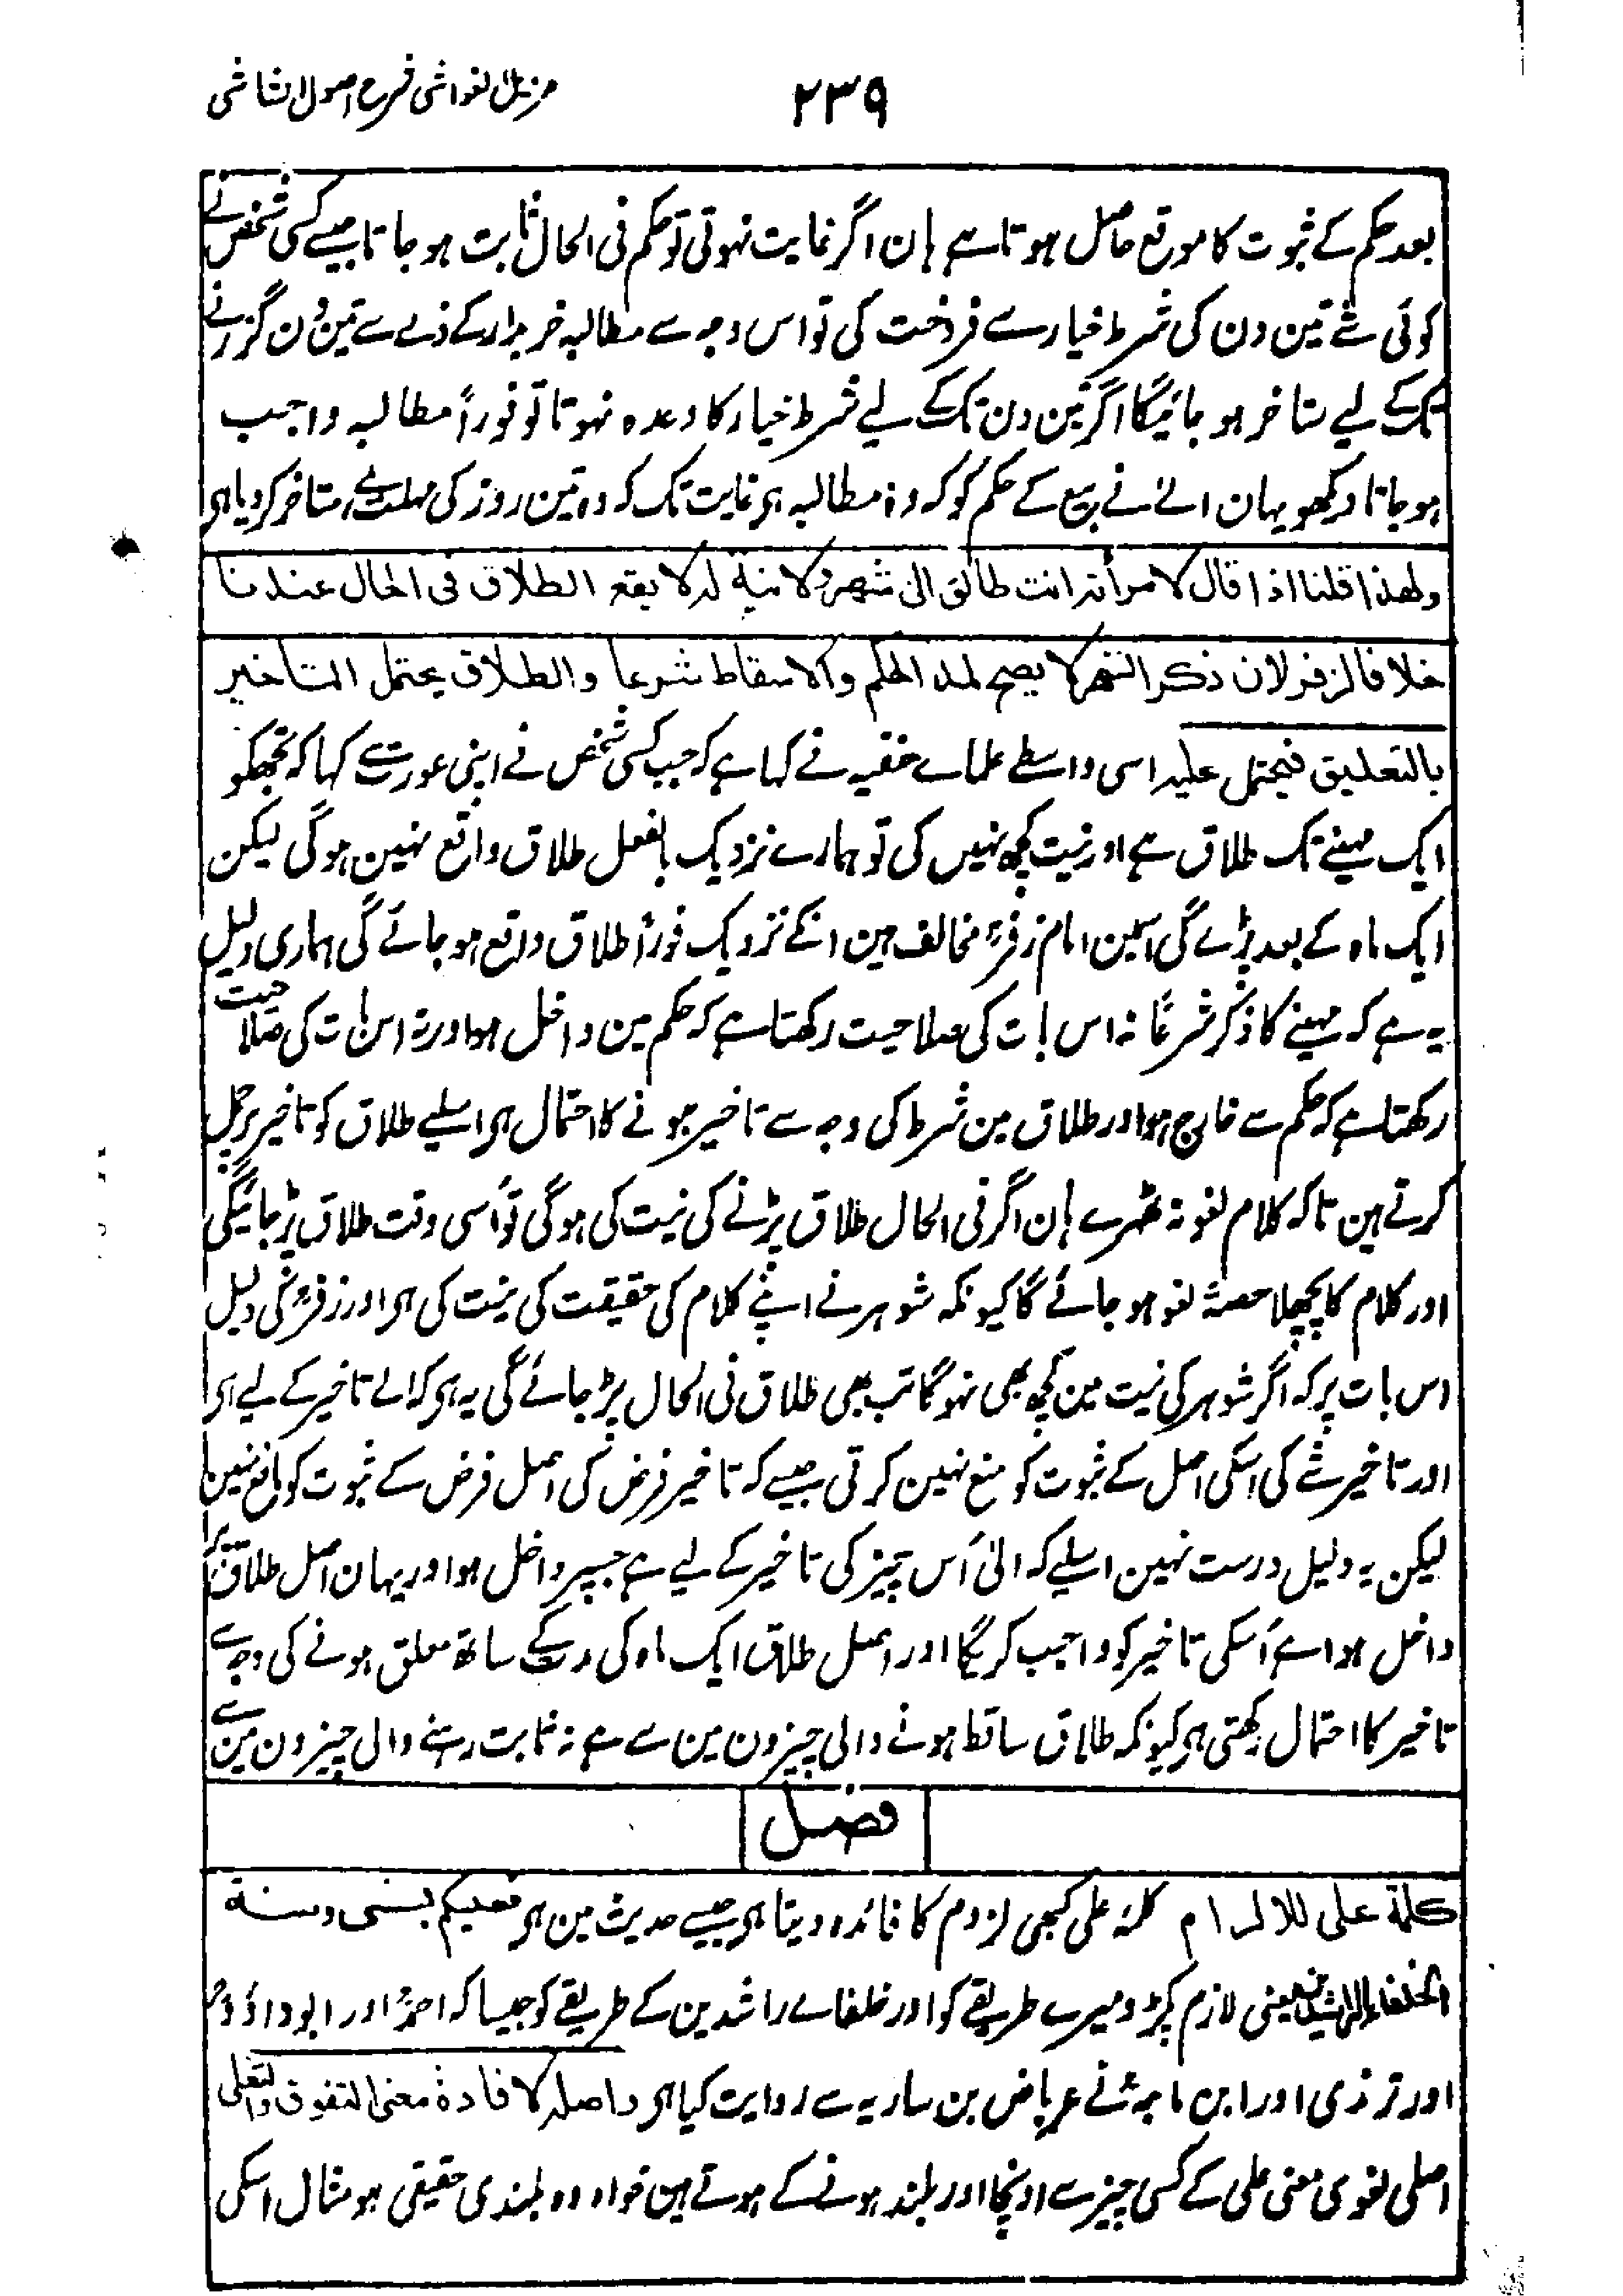 ۲۳۹
مزیل الغواشی شرح اصول الشاشی
بعد حکم کے ثبوت کا موقع حاصل ہوتا ہے ہان اگر غایت نہوتی تو حکم فی الحال ثابت ہو جاتا جیسے کسی شخص نے
کوئی شے تین دن کی شرط خیار سے فروخت کی تو اس وجہ سے مطالبہ خریدار کے ذمے سے تین دن گزرنے
تک کے لیے متاخر ہو جائیگا اگر تین دن تک کے لیے شرط خیار کا وعدہ نہوتا تو فوراً مطالبہ واجب
ہو جاتا دیکھو یہان الےٰ نے بیع کے حکم کو کہ وہ مطالبہ ہی غایت تک کہ وہ تین روز کی مہلت ہے متاخر کر دیا ہی
ولھذا قلنا اذا قال لامرأتہ انت طالق الی شھر ولا نیۃ لہ لا یقع الطلاق فی الحال عندنا
خلافا لزفر لان ذکر الشھر لا یصح لمد الحکم والاسقاط شرعا والطلاق یحتمل التاخیر
بالتعلیق فیحتمل علیہ اسی واسطے علماے حنفیہ نے کہا ہے کہ جب کسی شخص نے اپنی عورت سے کہا کہ تجھکو
ایک مہینے تک طلاق ہے اور نیت کچھ نہیں کی تو ہمارے نزدیک بالفعل طلاق واقع نہین ہوگی لیکن
ایک ماہ کے بعد پڑے گی اسمین امام زفرؒ مخالف ہین انکے نزدیک فوراً طلاق واقع ہو جائے گی ہماری دلیل
یہ ہے کہ مہینے کا ذکر شرعًا نہ اس بات کی صلاحیت رکھتا ہے کہ حکم مین داخل ہو اور نہ اس بات کی صلاحیت
رکھتا ہے کہ حکم سے خارج ہو اور طلاق مین شرط کی وجہ سے تاخیر ہونے کا احتمال ہی اسلیے طلاق کو تاخیر پر حمل
کرتے ہین تاکہ کلام لغو نہ ٹھہرے ہان اگر فی الحال طلاق پڑنے کی نیت کی ہوگی تو اُسی وقت طلاق پڑ جائیگی
اور کلام کا پچھلا حصہ لغو ہو جائے گا کیونکہ شوہر نے اپنے کلام کی حقیقت کی نیت کی ہی اور زفرؒ کی دلیل
اس بات پر کہ اگر شوہر کی نیت مین کچھ بھی نہوگا تب بھی طلاق فی الحال پڑ جائے گی یہ ہی کہ الے تاخیر کے لیے ہی
اور تاخیر شے کی اسکی اصل کے ثبوت کو منع نہین کرتی جیسے کہ تاخیر قرض کی اصل قرض کے ثبوت کو مانع نہین
لیکن یہ دلیل درست نہین اسلیے کہ الیٰ اُس چیز کی تاخیر کے لیے ہے جسپر داخل ہو اور یہان اصل طلاق پر
داخل ہوا ہے اُسکی تاخیر کو واجب کریگا اور اصل طلاق ایک ماہ کی مدت کے ساتھ معلق ہونے کی وجہ سے
تاخیر کا احتمال رکھتی ہی کیونکہ طلاق ساقط ہونے والی چیزون مین سے ہے نہ ثابت رہنے والی چیزون مین سے
فصل
کلمۃ علی للالزام کلمۂ علی کبھی لزوم کا فائدہ دیتا ہی جیسے حدیث مین ہی فعلیکم بسنتی وسنۃ
الخلفاء الراشدین یعنی لازم پکڑو میرے طریقے کو اور خلفاے راشدین کے طریقے کو جیسا کہ احمدؒ اور ابو داؤدؒ
اور ترمذی اور ابن ماجہؒ نے عرباض بن ساریہ سے روایت کیا ہی واصلہ لافادۃ معنی التفوق والتعلی
اصلی لغوی معنی علی کے کسی چیز سے اونچا اور بلند ہونے کے ہوتے ہین خواہ وہ بلندی حقیقی ہو مثال اسکی